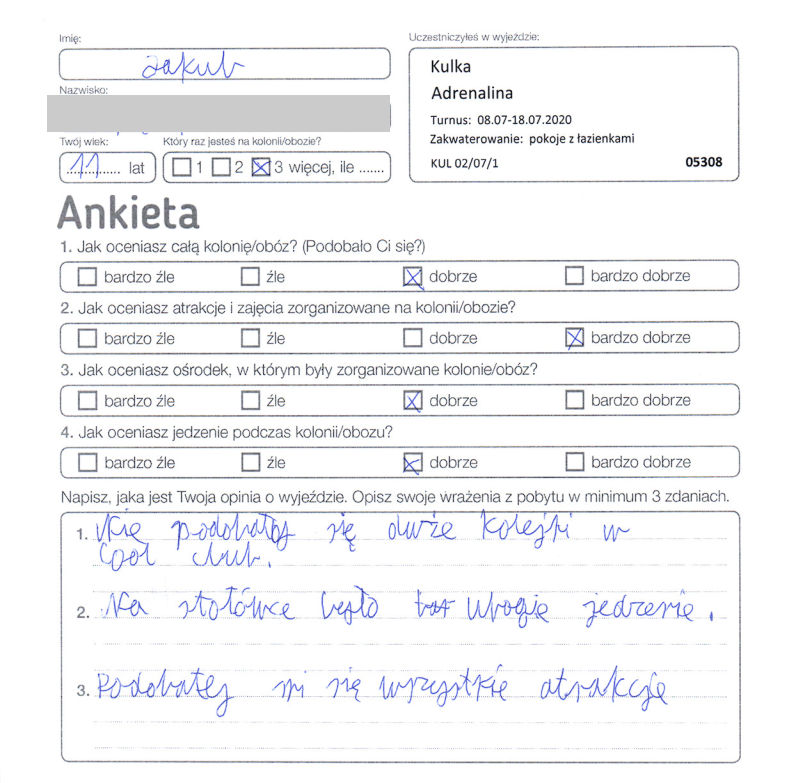 Imię:
Jakub
Uczestniczyłeś w wyjeździe:
Kulka
Adrenalina
Turnus: 08.07-18.07.2020
Zakwaterowanie: pokoje z łazienkami
KUL 02/07/1 05308
Nazwisko:
Twój wiek: Który raz jesteś na kolonii/obozie?
11 lat 1 2 3 więcej, ile .......
Ankieta
1. Jak oceniasz całą kolonię/obóz? (Podobało Ci się?)
bardzo źle źle dobrze bardzo dobrze
2. Jak oceniasz atrakcje i zajęcia zorganizowane na kolonii/obozie?
bardzo źle źle dobrze bardzo dobrze
3. Jak oceniasz ośrodek, w którym były zorganizowane kolonie/obóz?
bardzo źle źle dobrze bardzo dobrze
4. Jak oceniasz jedzenie podczas kolonii/obozu?
bardzo źle źle dobrze bardzo dobrze
Napisz, jaka jest Twoja opinia o wyjeździe. Opisz swoje wrażenia z pobytu w minimum 3 zdaniach.
1. Nie podobałej się duże kolejki w
Cool club.
2. Na stołówce było ubogie jedzenie.
3. Podobałej mi się wszystkie atrakcje